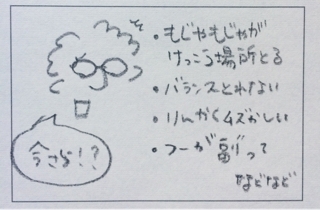 ・もじゃもじゃが
けっこう場所とる
・バランスとれない
・りんかくムズかしい
・フーが副って
などなど
今さら!?